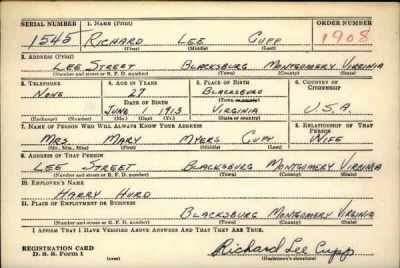 SERIAL NUMBER 1. NAME (Print) ORDER NUMBER
1545 RICHARD LEE CUPP 1908
(First) (Middle) (Last)
2. ADDRESS (Print)
LEE STREET BLACKSBURG MONTGOMERY VIRGINIA
(Number and street or R. F. D. number) (Town) (County) (State)
3. TELEPHONE 4. AGE IN YEARS 5. PLACE OF BIRTH 6. COUNTRY OF CITIZENSHIP
NONE 27 BLACKSBURG
DATE OF BIRTH (Town or county)
JUNE 1 1913 VIRGINIA U.S.A.
(Exchange) (Number) (Mo.) (Day) (Yr.) (State or country)
7. NAME OF PERSON WHO WILL ALWAYS KNOW YOUR ADDRESS 8. RELATIONSHIP OF THAT PERSON
MRS. MARY MYERS CUPP WIFE
(Mr., Mrs., Miss) (First) (Middle) (Last)
9. ADDRESS OF THAT PERSON
LEE STREET BLACKSBURG MONTGOMERY VIRGINIA
(Number and street or R. F. D. number) (Town) (County) (State)
10. EMPLOYER'S NAME
HARRY HURD
11. PLACE OF EMPLOYMENT OR BUSINESS
BLACKSBURG MONTGOMERY VIRGINIA
(Number and street or R. F. D. number) (Town) (County) (State)
I AFFIRM THAT I HAVE VERIFIED ABOVE ANSWERS AND THAT THEY ARE TRUE.
REGISTRATION CARD
D. S. S. Form 1 (over) Richard Lee Cupp
(Registrant's signature)